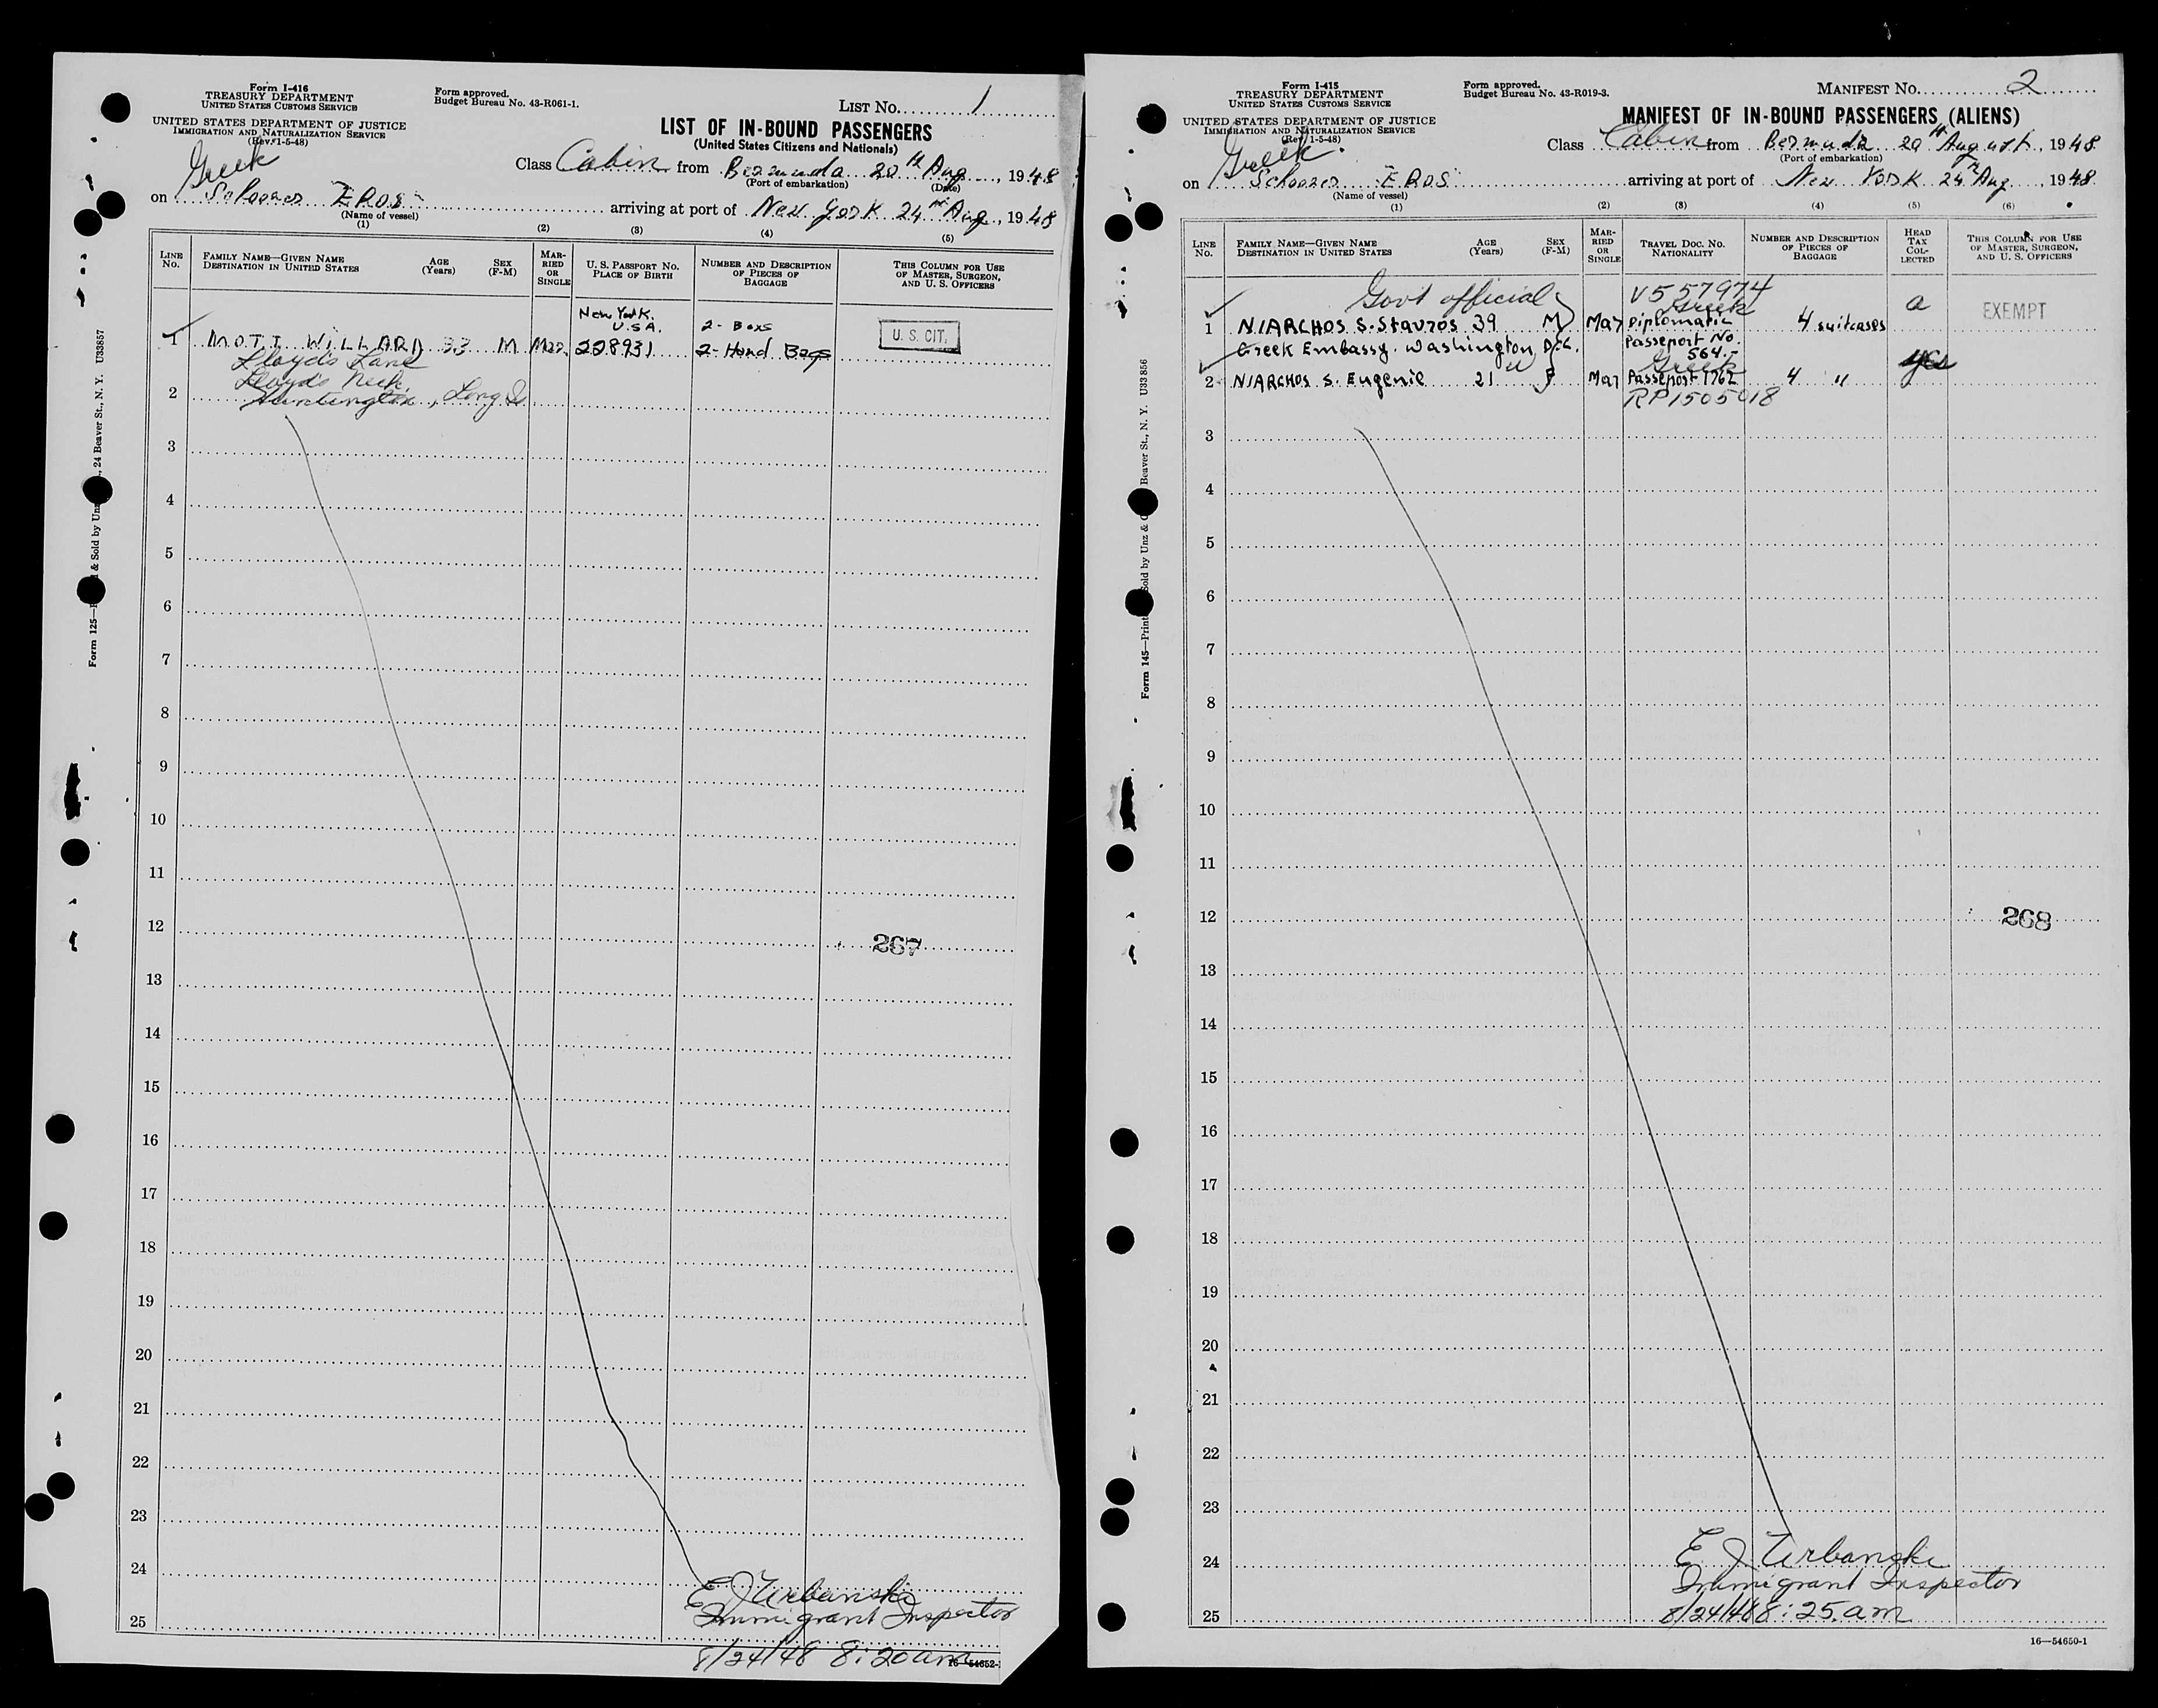 Form I-416
TREASURY DEPARTMENT
UNITED STATES CUSTOMS SERVICE
UNITED STATES DEPARTMENT OF JUSTICE
IMMIGRATION AND NATURALIZATION SERVICE
(Rev. 1-5-48)
Form approved.
Budget Bureau No. 43-R061-1.
LIST No. 1
LIST OF IN-BOUND PASSENGERS
(United States Citizens and Nationals)
Greek
Class Cabin from Bermuda 20th Aug., 1948
(Port of embarkation) (Date)
on Schooner EROS arriving at port of New York 24th Aug., 1948
(Name of vessel)
(1) (2) (3) (4) (5)
LINE No.
FAMILY NAME—GIVEN NAME
DESTINATION IN UNITED STATES
AGE (Years)
SEX (F-M)
MARRIED OR SINGLE
U. S. PASSPORT NO.
PLACE OF BIRTH
NUMBER AND DESCRIPTION OF PIECES OF BAGGAGE
THIS COLUMN FOR USE OF MASTER, SURGEON, AND U. S. OFFICERS
New York.
U.S.A. 2- Boxs
1 MOTT WILLARD 33 M Mar. 228931 2-Hand Bags U. S. CIT.
Lloyd's Lane
Lloyd's Neck.
2 Huntington, Long Is.
3
4
5
6
7
8
9
10
11
12 267
13
14
15
16
17
18
19
20
21
22
23
24
25
E J Urbanski
Immigrant Inspector
8/24/48 8:20 am
16—54652-1
Form 125—
& Sold by Unz
, 24 Beaver St., N. Y. U33857
Form I-415
TREASURY DEPARTMENT
UNITED STATES CUSTOMS SERVICE
UNITED STATES DEPARTMENT OF JUSTICE
IMMIGRATION AND NATURALIZATION SERVICE
(Rev. 1-5-48)
Form approved.
Budget Bureau No. 43-R019-3.
MANIFEST No. 2
MANIFEST OF IN-BOUND PASSENGERS (ALIENS)
Greek.
Class Cabin from Bermuda 20th August, 1948
(Port of embarkation)
on Schooner EROS arriving at port of New York 24th Aug, 1948
(Name of vessel)
(1) (2) (3) (4) (5) (6)
LINE No.
FAMILY NAME—GIVEN NAME
DESTINATION IN UNITED STATES
AGE (Years)
SEX (F-M)
MARRIED OR SINGLE
TRAVEL DOC. NO.
NATIONALITY
NUMBER AND DESCRIPTION OF PIECES OF BAGGAGE
HEAD TAX COLLECTED
THIS COLUMN FOR USE OF MASTER, SURGEON, AND U. S. OFFICERS
Govt official V557974
Greek
1 NIARCHOS S. Stavros 39 M Mar Diplomatic 4 suitcases a EXEMPT
Greek Embassy. Washington D.C. Passeport No.
564.-
Greek
2 NIARCHOS S. Eugenie 21 F Mar Passeport 1762 4 "
RP1505018
3
4
5
6
7
8
9
10
11
12 268
13
14
15
16
17
18
19
20
21
22
23
24
25
E J Urbanski
Immigrant Inspector
8/24/48 8:25 am
16—54650-1
Form 145—Print
Sold by Unz &
Beaver St., N. Y. U33856